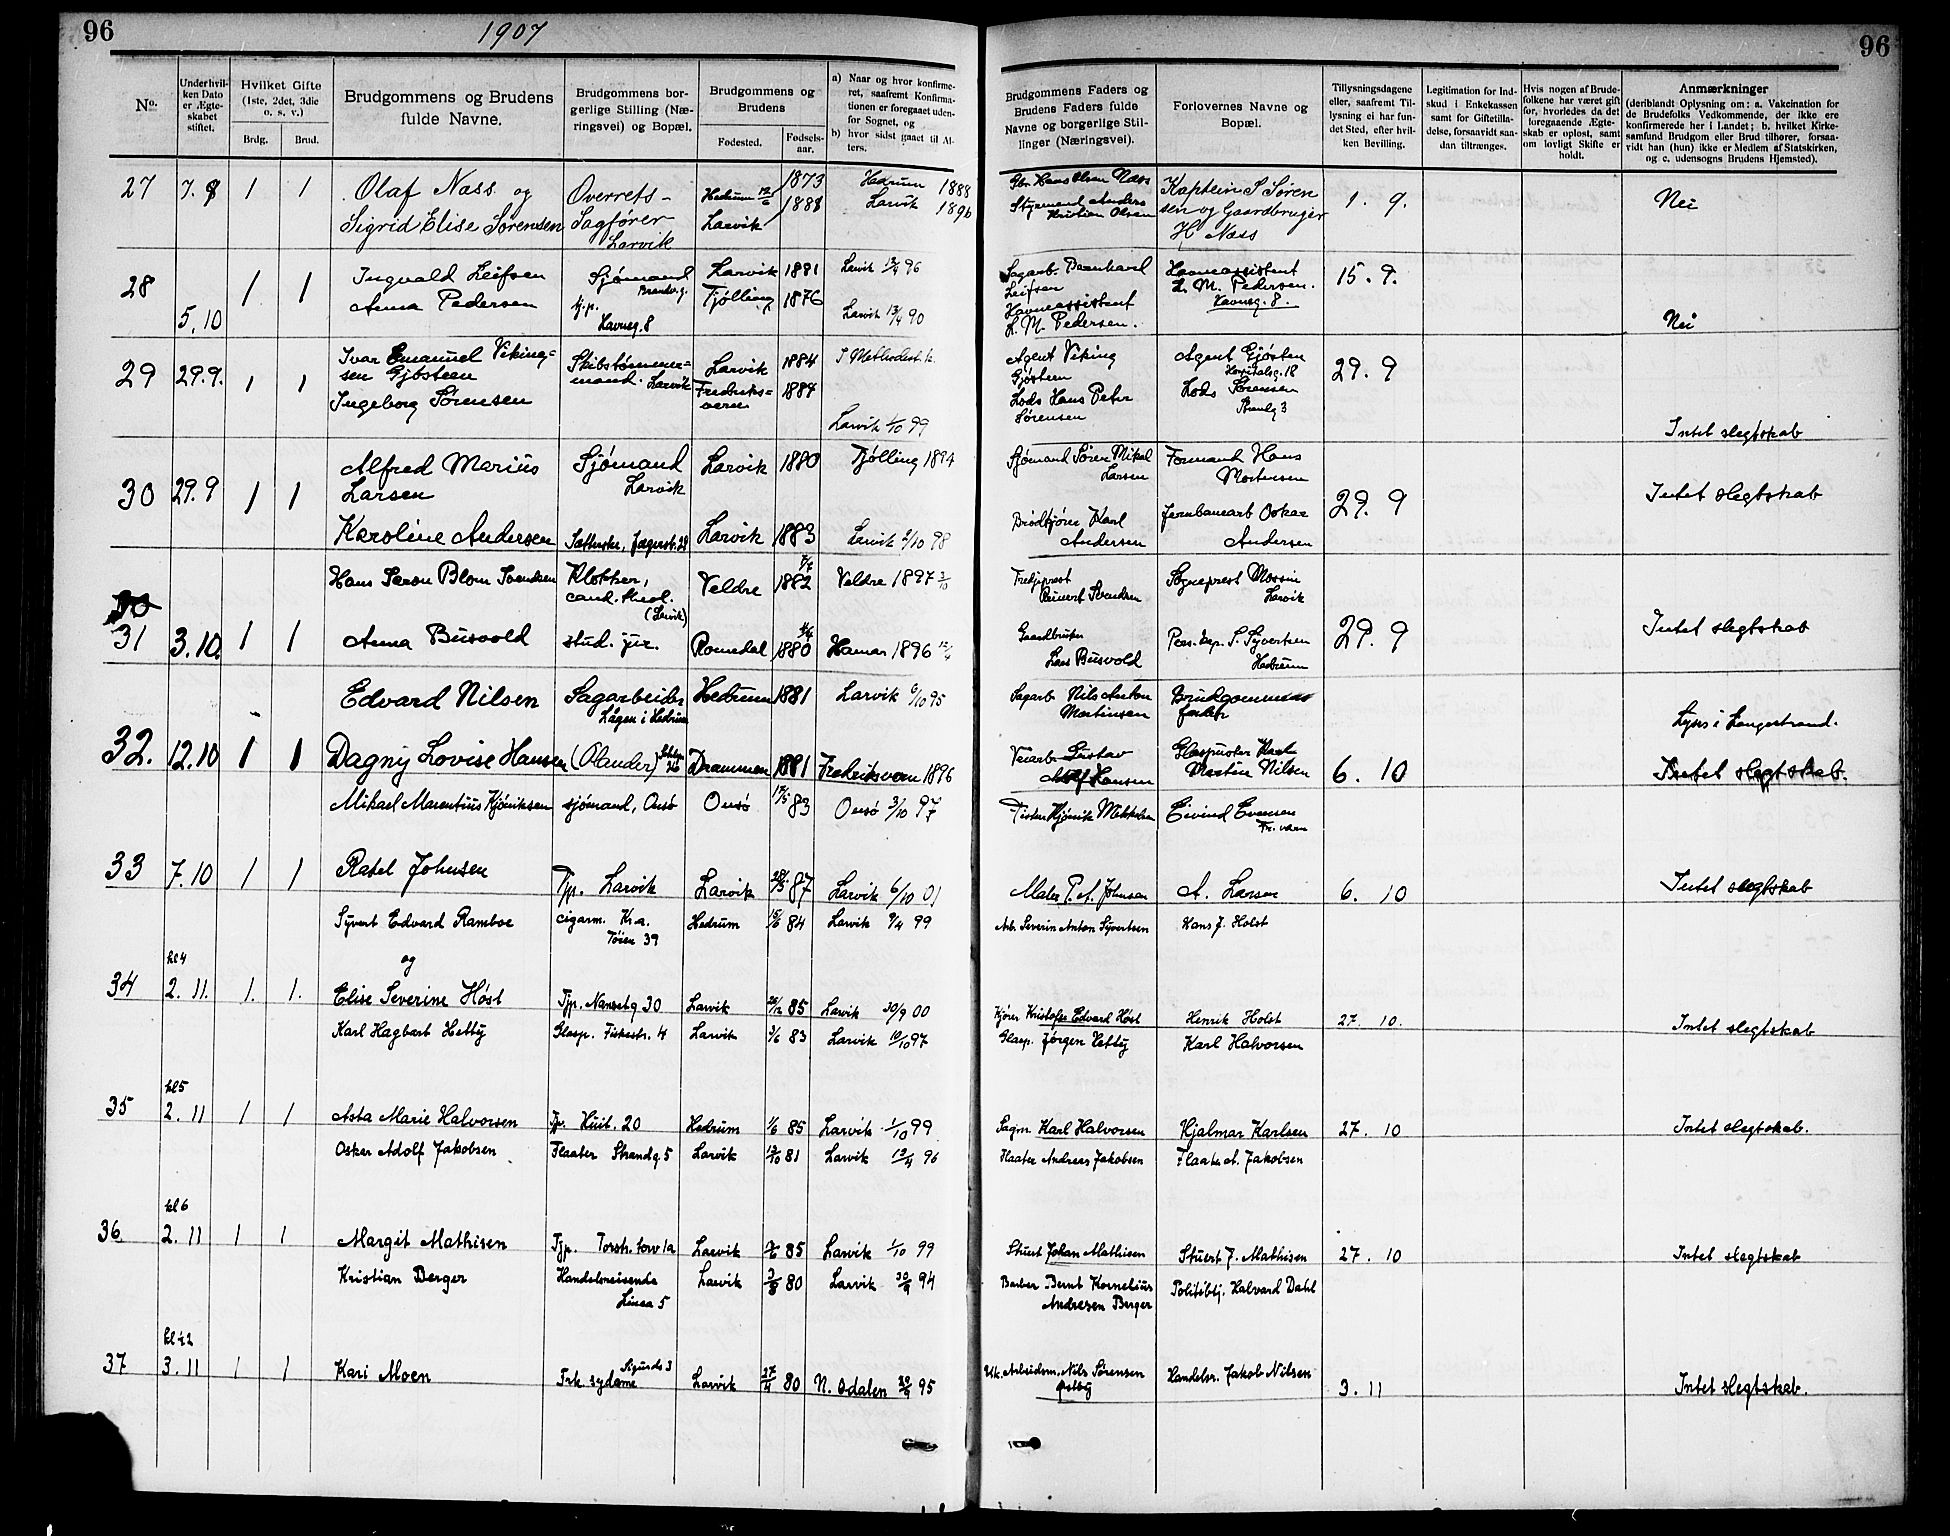 96
1907
96
No.
Under hvil-
ken Dato
er Ægte-
skabet
stiftet.
Hvilket Gifte
(1ste, 2det, 3die
o. s. v.)
Brdg.
Brud.
Brudgommens og Brudens
fulde Navne.
Brudgommens bor-
gerlige Stilling (Næ-
ringsvei) og Bopæl.
Brudgommens og
Brudens
Fødested.
Fødsels-
aar.
a) Naar og hvor konfirme-
ret, saafremt Konfirma-
tionen er foregaaet uden-
for Sognet, og
b) hvor sidst gaaet til Al-
ters.
Brudgommens Faders og
Brudens Faders fulde
Navne og borgerlige Stil-
linger (Næringsvei).
Forlovernes Navne og
Bopæl.
Tillysningsdagene
eller, saafremt Til-
lysning ei har fun-
det Sted, efter hvil-
ken Bevilling.
Legitimation for Ind-
skud i Enkekassen
samt for Giftetilla-
delse, forsaavidt saa-
dan tiltrænges.
Hvis nogen av Brude-
folkene har været gift
før, hvorledes da det
foregaaende Ægte-
skab er opløst, samt
om lovligt Skifte er
holdt.
Anmærkninger
(deriblandt Oplysning om: a. Vakcination for
de Brudefolks Vedkommende, der ikke ere
konfirmerede her i Landet; b. hvilket Kirke-
samfund Brudgom eller Brud tilhører, forsaa-
vidt han (hun) ikke er Medlem af Statskirken,
og c. udensogns Brudens Hjemsted).
27 7. 1 1 Olaf Næss og Overrets- Hedrum 1873 Hedrum 1888
Sigrid Elise Sørensen Sagfører Larvik 1888 Larvik 1896
Larvik
Gbr. Hans Olsen Næss Kaptein S. Søren
Styrmand Anders sen og Gaardbruger 1. 9. Nei
Kristian Olsen H. Næss
28 5.10 1 1 Ingvald Leifsen Sjømand Larvik 1881 Larvik 13/4 96
Anna Pedersen Tjølling 1876
Havneg. 8 Larvik 13/4 90
Sagarb. Bernhard Havneassistent 15. 9.
Leifsen L. M. Pedersen.
Havneassistent Havneg. 8.
L. M. Pedersen. Nei
29 29.9. 1 1 Ivar Emanuel Viking- Skibstømmer- Larvik 1884 I Methodistk.
sen Gjösteen mand. Larvik
Ingeborg Sørensen Frederiks- 1884
værn Larvik 1/10 99
Agent Viking Agent Gjøsteen 29. 9
Gjøsteen Hospitalsg. 18
Lods Hans Peter Lods Sørensen
Sørensen Strandg 3 Intet slegtskab
30 29.9 1 1 Alfred Marius Sjømand Larvik 1880 Tjølling 1894
Larsen Larvik
Karoline Andersen Jægerst. 28 Larvik 1883 Larvik 2/10 98
Sjømand Søren Mikal Formand Hans
Larsen Mortensen 29. 9 Intet slegtskab
Brødkjører Karl Jernbanearb Oskar
Andersen Andersen
31 3.10. 1 1 Hans Blom Svendsen Klokker, Veldre 1882 Veldre 1897 3/10
cand. theol.
(Larvik)
Anna Busvold stud. jur. Romedal 1880 Hamar 1896
Sogneprest Mossin
Svendsen Larvik
Gaardbruker Pers. kap. S. Syvertsen 29. 9 Intet slegtskab
Lars Busvold Hedrum
32. 12.10 1 1 Edvard Nilsen Sagarbeider Hedrum 1881 Larvik 6/10 95
Lågen i Hedrum
Dagny Lovise Hansen (Olander) Drammen 1881 Frederiksværn 1896
Sagarb Nils Anton Brudgommens
Martinsen fader Lyses i Langestrand.
Veiarb. Gustav Glaspuster Karl
Adolf Hansen Martin Nilsen 6. 10 Intet slegtskab.
33 7.10 1 1 Mikael Marentius Kjöniksen sjømand, Onsö Onsö 17/5 83 Onsö 3/10 97
Rakel Johnsen Tjp. Larvik Larvik 87 Larvik 6/10 01
Fisker Kjönik Mikkelsen Eivind Evensen
Fr. værn
Maler P. A. Johnsen A. Larsen 6. 10 Intet slegtskab
34 kl 4
2. 11. 1. 1. Syvert Edvard Ramboe cigarm. Kr.a. Hedrum 15/6 84 Larvik 9/4 99
Töien 39
og
Elise Severine Höst Tjp. Nansetg 30 Larvik 85 Larvik 30/9 00
Arb. Severin Anton Syvertsen Hans J. Holst
Kjører Kristoffer Edvard Höst Henrik Holst 27. 10. Intet slegtskab
35 kl 5
2. 11 1 1 Karl Hagbart Hetty Glasp. Fiskestr. 4 Larvik 3/6 83 Larvik 10/10 97
Asta Marie Halvorsen Tjp. Huit. 20 Hedrum 1/6 85 Larvik 1/10 99
Glasp. Jørgen Hetty Karl Halvorsen
Sagm. Karl Halvorsen Hjalmar Karlsen 27. 10 Intet slegtskab.
36 kl 6
2. 11 1 1 Oskar Adolf Jakobsen Flaater Strandg 5 Larvik 13/10 81 Larvik 12/4 96
Margit Mathisen Tjp. Torstr. torv 1a Larvik 85 Larvik 1/10 99
Flaater Andreas Jakobsen Flaater A. Jakobsen
Stuert Johan Mathisen Stuert J. Mathisen 27. 10 Intet slegtskab
37 kl 12
3. 11 1 1 Kristian Berger Handelsreisende Larvik 80 Larvik 30/9 94
Linea 5
Kari Moen Frk sydame Sigurds 3 Larvik 27/4 80 N. Odalen 29/9 95
Barber Bernt Kornelius Politibtj. Halvard Dahl
Andresen Berger
Uk. Arbeidsm. Nils Sørensen Handelsr. Jakob Nilsen
3. 11 Intet slegtskab.